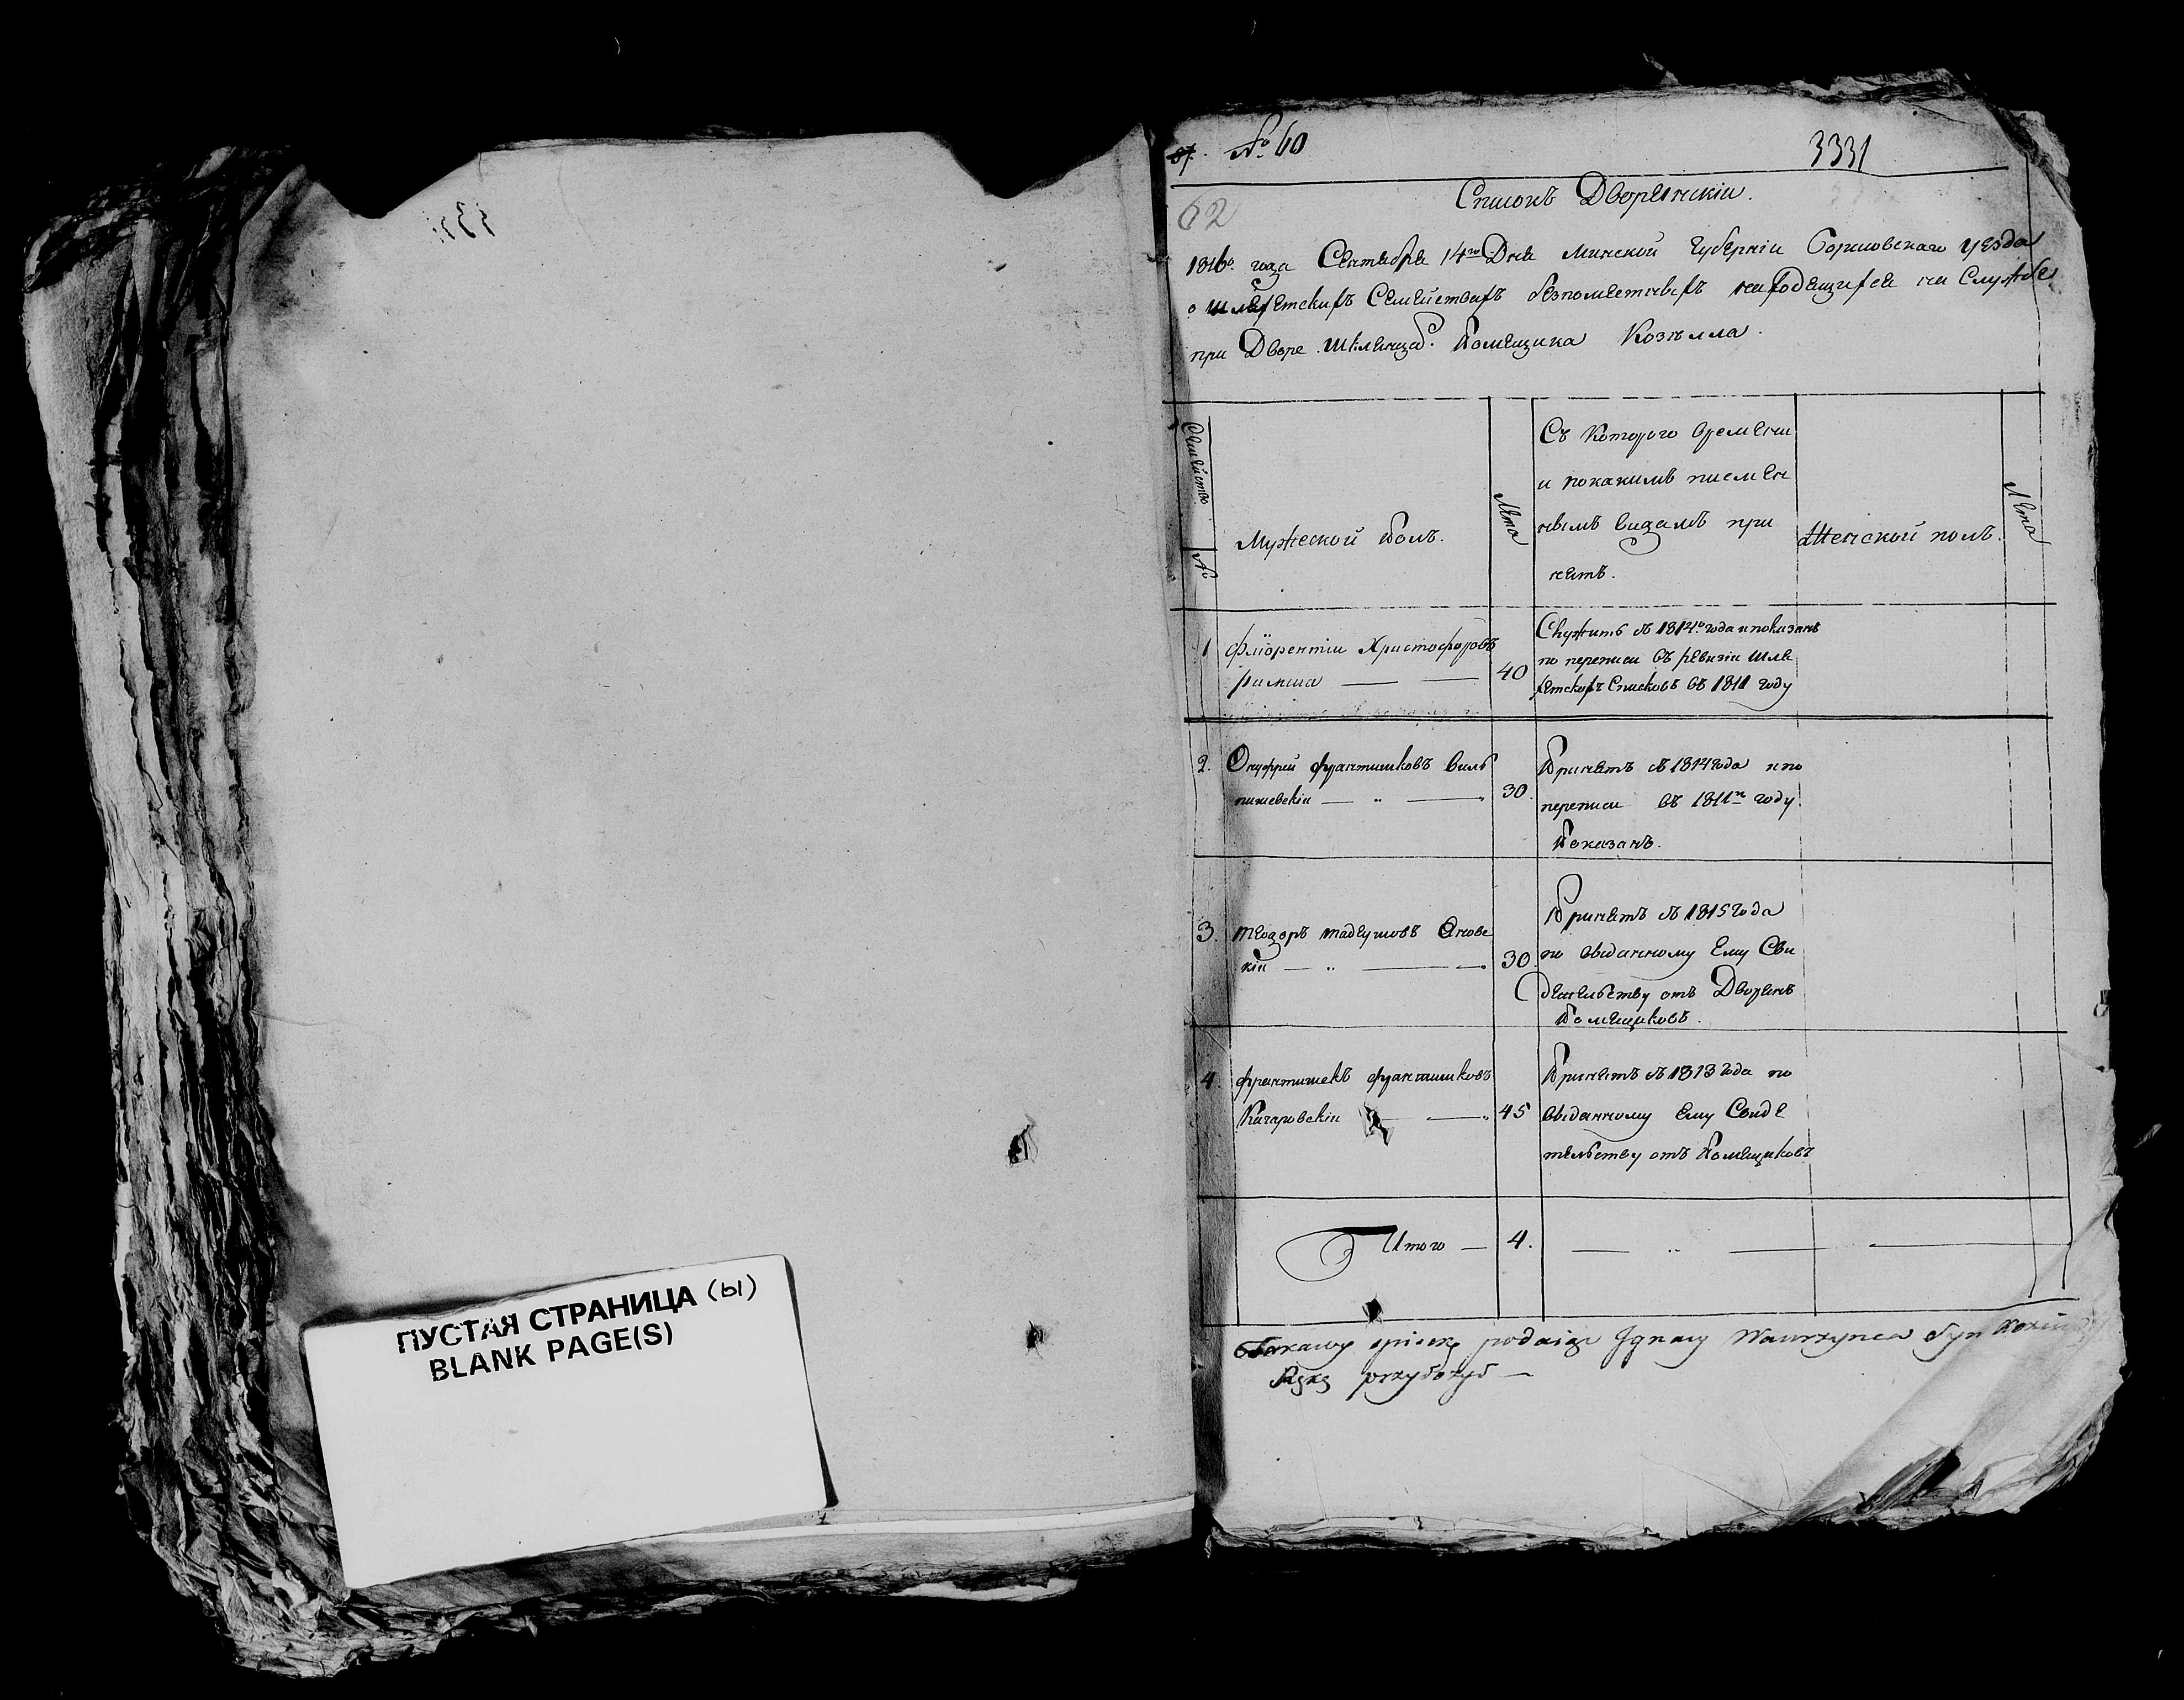 87. № 60
3331
62
Списокъ Дворянскіи.
1816го года Сентября 14го Дня Минской Губерніи Борисовскаго уезда
о шляхетскихъ Семействахъ безпоместныхъ находящихся на Службе
при Дворе Помещика Козелла.
Семейство
№
Мужеской полъ.
Лета
Съ Которого времени
и покакимъ писмен
нымъ видамъ при
нятъ.
Женской полъ.
Лета
1
Флiорентiи Христофоровъ
Рымша
40
Служитъ съ 1814го года и показанъ
по переписи въ ревизіи шля
хетскохъ Списковъ въ 1811 году
2.
Онуфрей Франтишковъ
30.
Принятъ съ 1814 года и по
переписи въ 1811м году
Показанъ.
3.
Теодоръ Тадеушовъ
кіи
30
Принятъ съ 1815 года
по выданному Ему Сви
детельству отъ Дворянъ
Помещиковъ.
4.
Франтишекъ Франтишковъ
Качаровскіи
45
Принятъ съ 1813 года по
выданному Ему Свиде
тельству отъ Помещиковъ
Итого
4.
Takowy spisek podaiąc Jgnacy Wawrzynca Syn
Rękę przyłożył
ПУСТАЯ СТРАНИЦА (Ы)
BLANK PAGE(S)